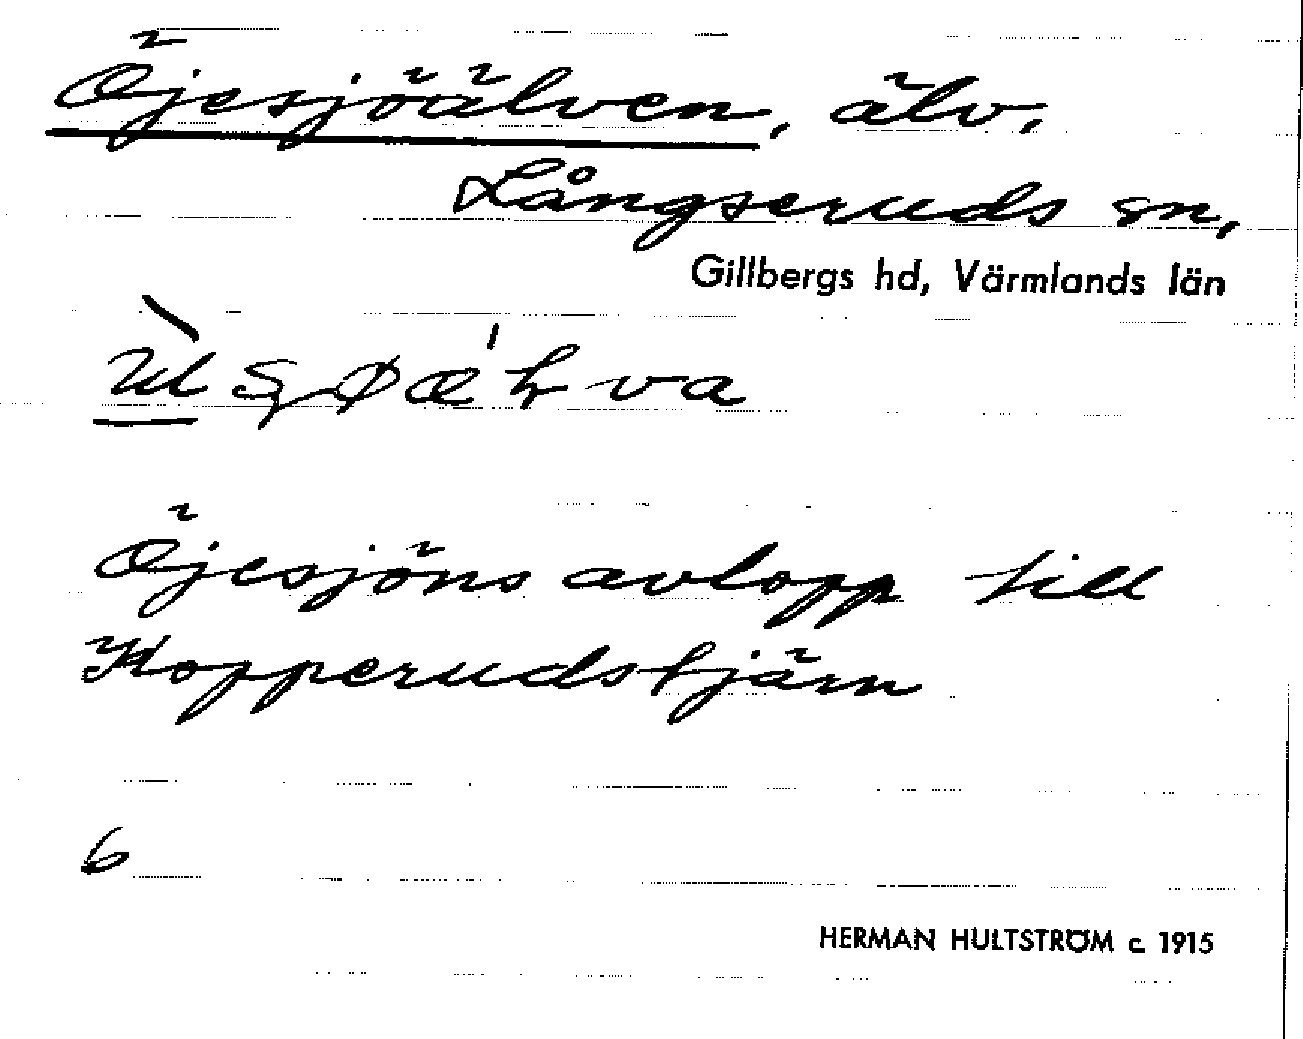 Öjesjöälven, älv.
Långseruds sn,
Gillbergs hd, Värmlands län
Öjesjöns avlopp till
Kopperudstjärn
6
HERMAN HULTSTRÖM c. 1915